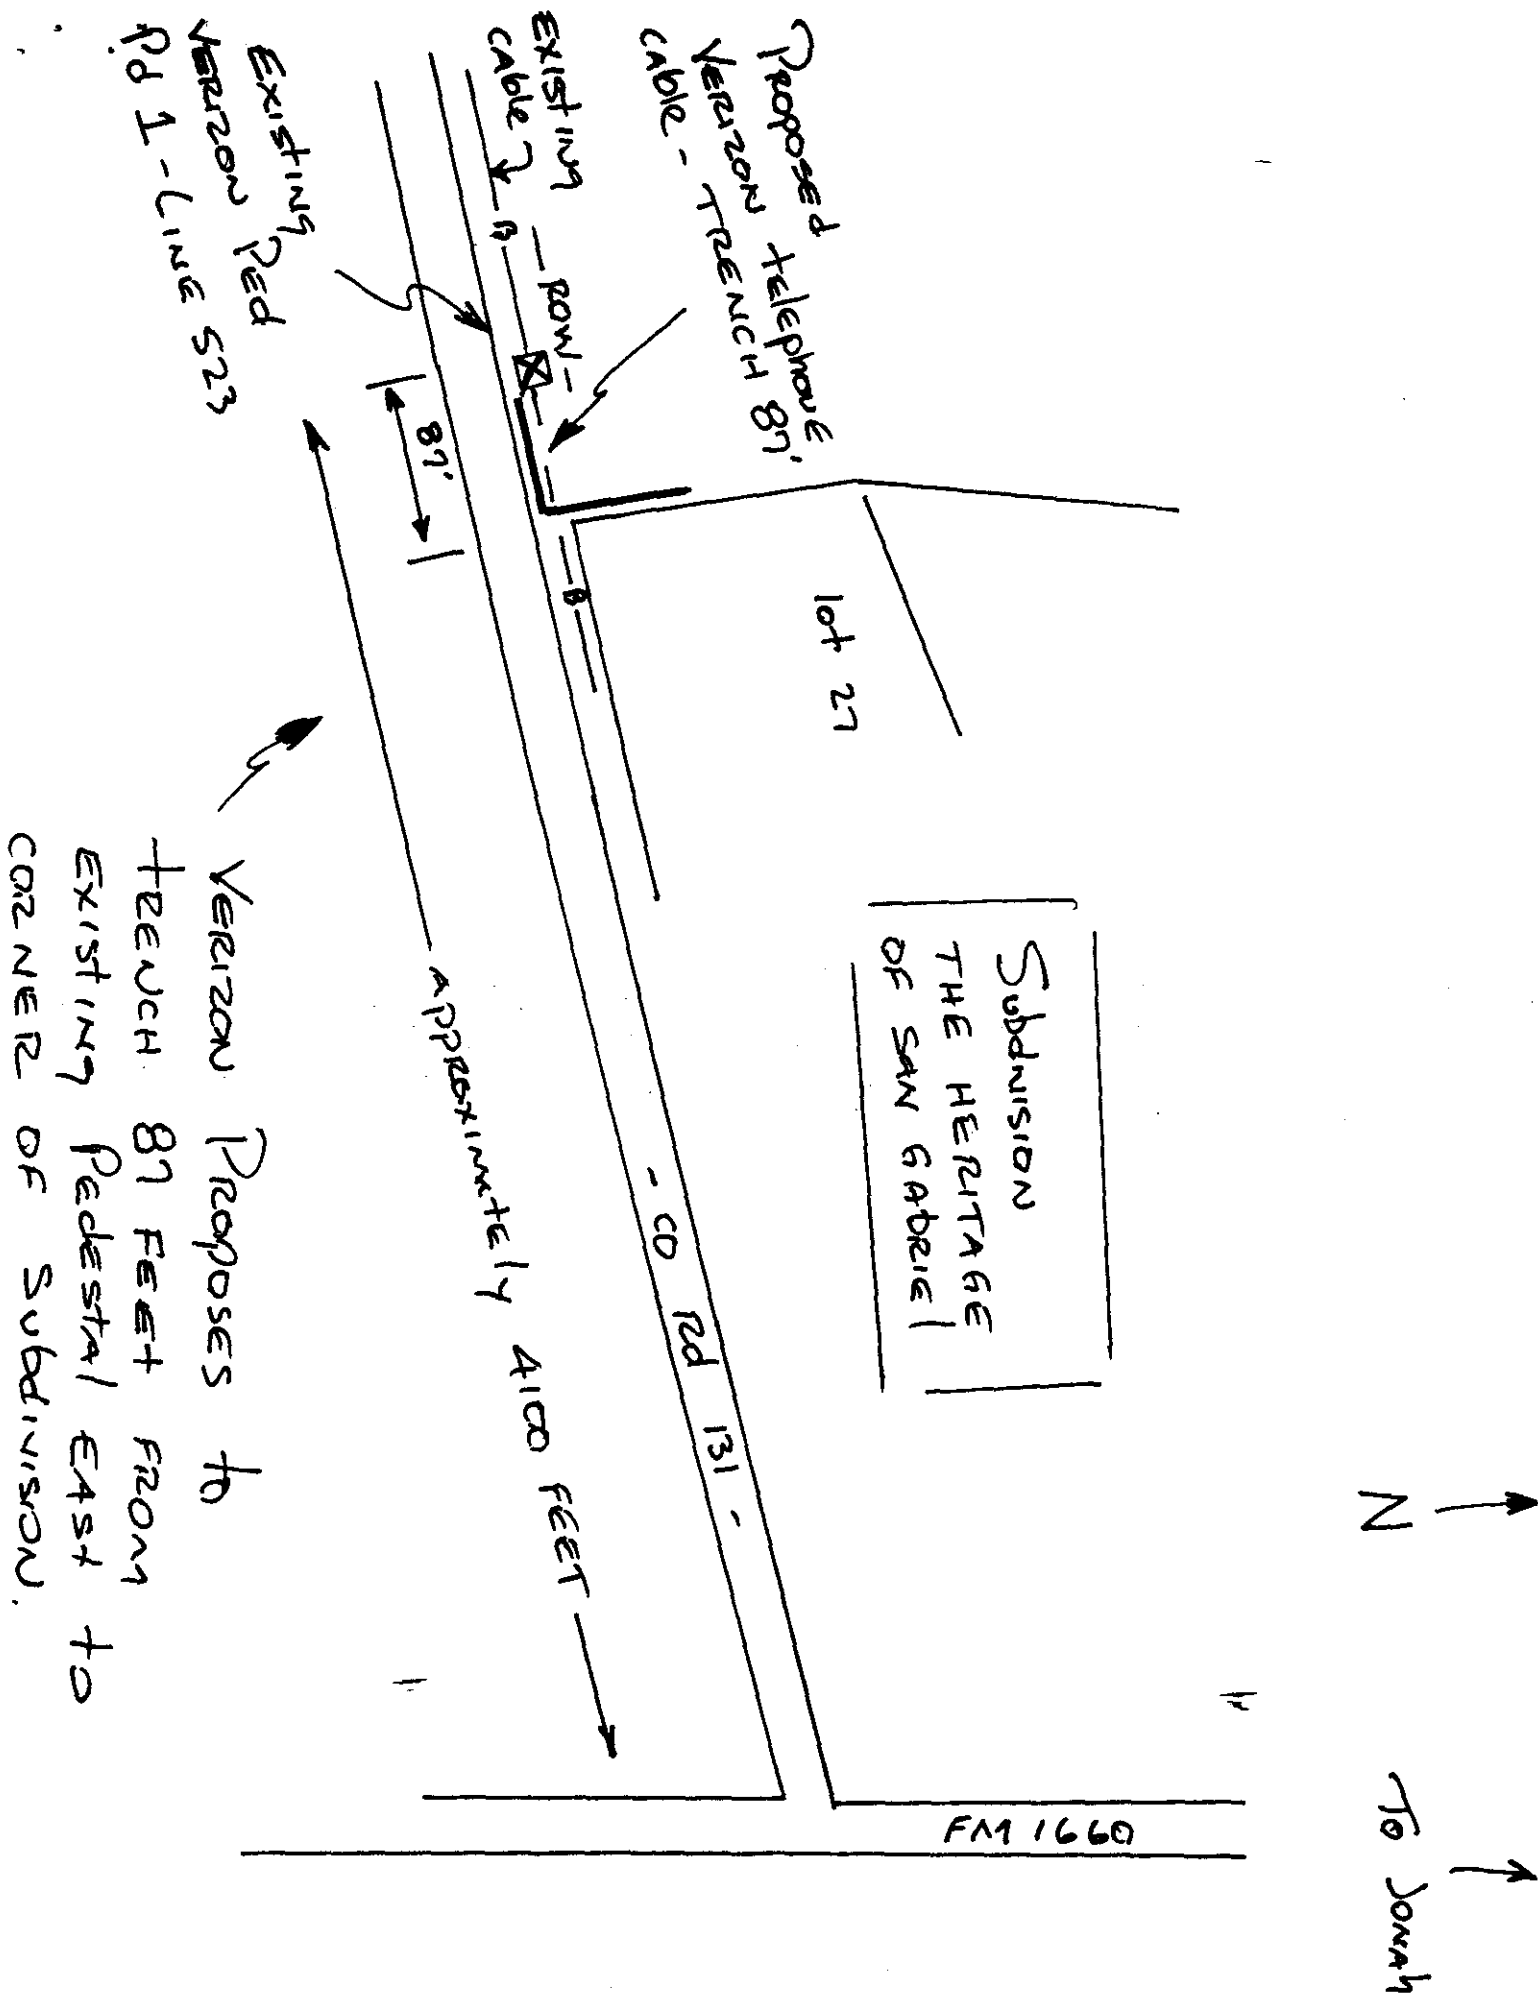 N
To JONAH
PROPOSED
VERIZON telephone
CABLE - TRENCH 87'
EXISTING
CABLE
- ROW -
B
B
87'
EXISTING
VERIZON PEd
Rd 1 - LINE 523
lot 27
Subdivision
THE HERITAGE
OF SAN GABRIEL
FM 1660
- CO Rd 131 -
APPROXIMATELY 4100 FEET
VERIZON PROPOSES to
TRENCH 87 FEET FROM
EXISTING PEDESTAL EAST to
CORNER OF SUBDIVISION.